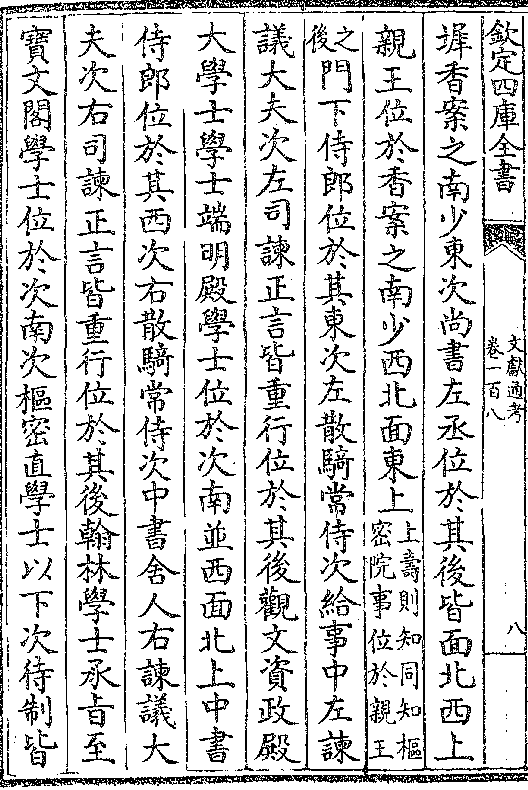 欽定四庫全書
文獻通考
卷一百八
八
墀香案之南少東次尚書左丞位於其後皆面北西上
親王位於香案之南少西北面東上上壽則知同知樞密院事位於親王
之後門下侍郎位於其東次左散騎常侍次給事中左諫
議大夫次左司諫正言皆重行位於其後觀文資政殿
大學士學士端明殿學士位於次南並西面北上中書
侍郎位於其西次右散騎常侍次中書舍人右諫議大
夫次右司諫正言皆重行位於其後翰林學士承旨至
寶文閣學士位於次南次樞密直學士以下次待制皆